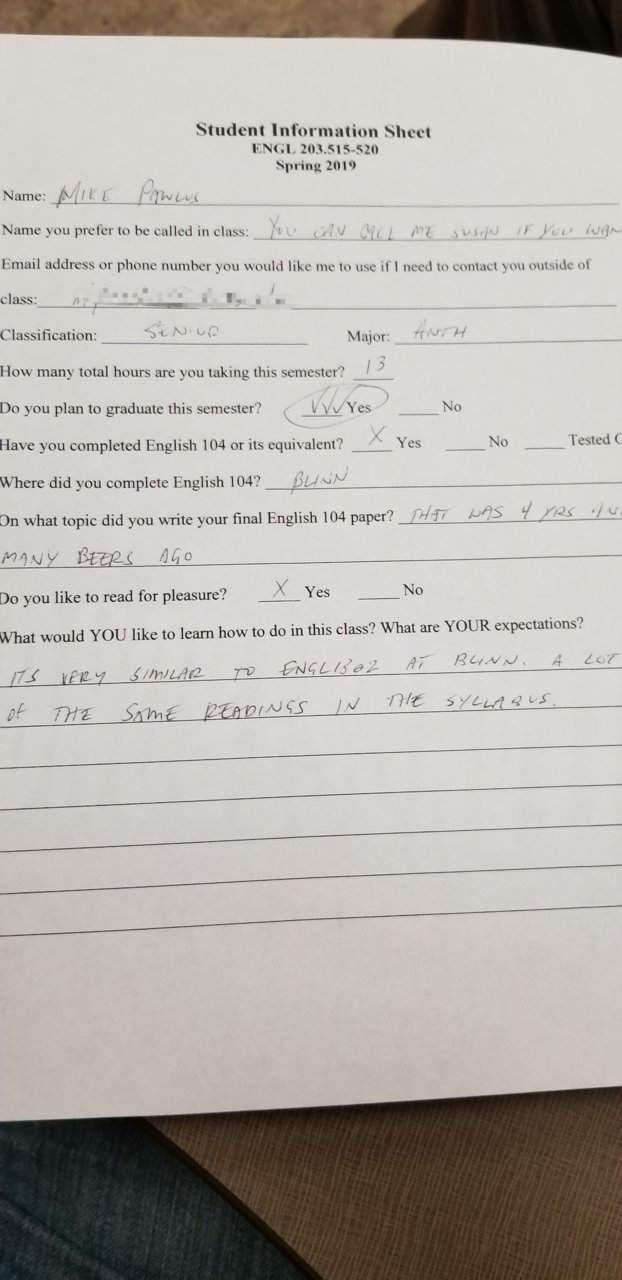 Student Information Sheet
ENGL 203.515-520
Spring 2019
Name: MIKE
Name you prefer to be called in class: YOU CAN CALL ME SUSAN IF YOU WAN
Email address or phone number you would like me to use if I need to contact you outside of
class:
Classification: SENIOR Major: ANTH
How many total hours are you taking this semester? 13
Do you plan to graduate this semester? Yes No
Have you completed English 104 or its equivalent? X Yes No Tested
Where did you complete English 104? BLINN
On what topic did you write your final English 104 paper? THAT WAS 4 YRS
MANY BEERS AGO
Do you like to read for pleasure? X Yes No
What would YOU like to learn how to do in this class? What are YOUR expectations?
ITS VERY SIMILAR TO ENGL1302 AT BLINN. A LOT
OF THE SAME READINGS IN THE SYLLABUS.